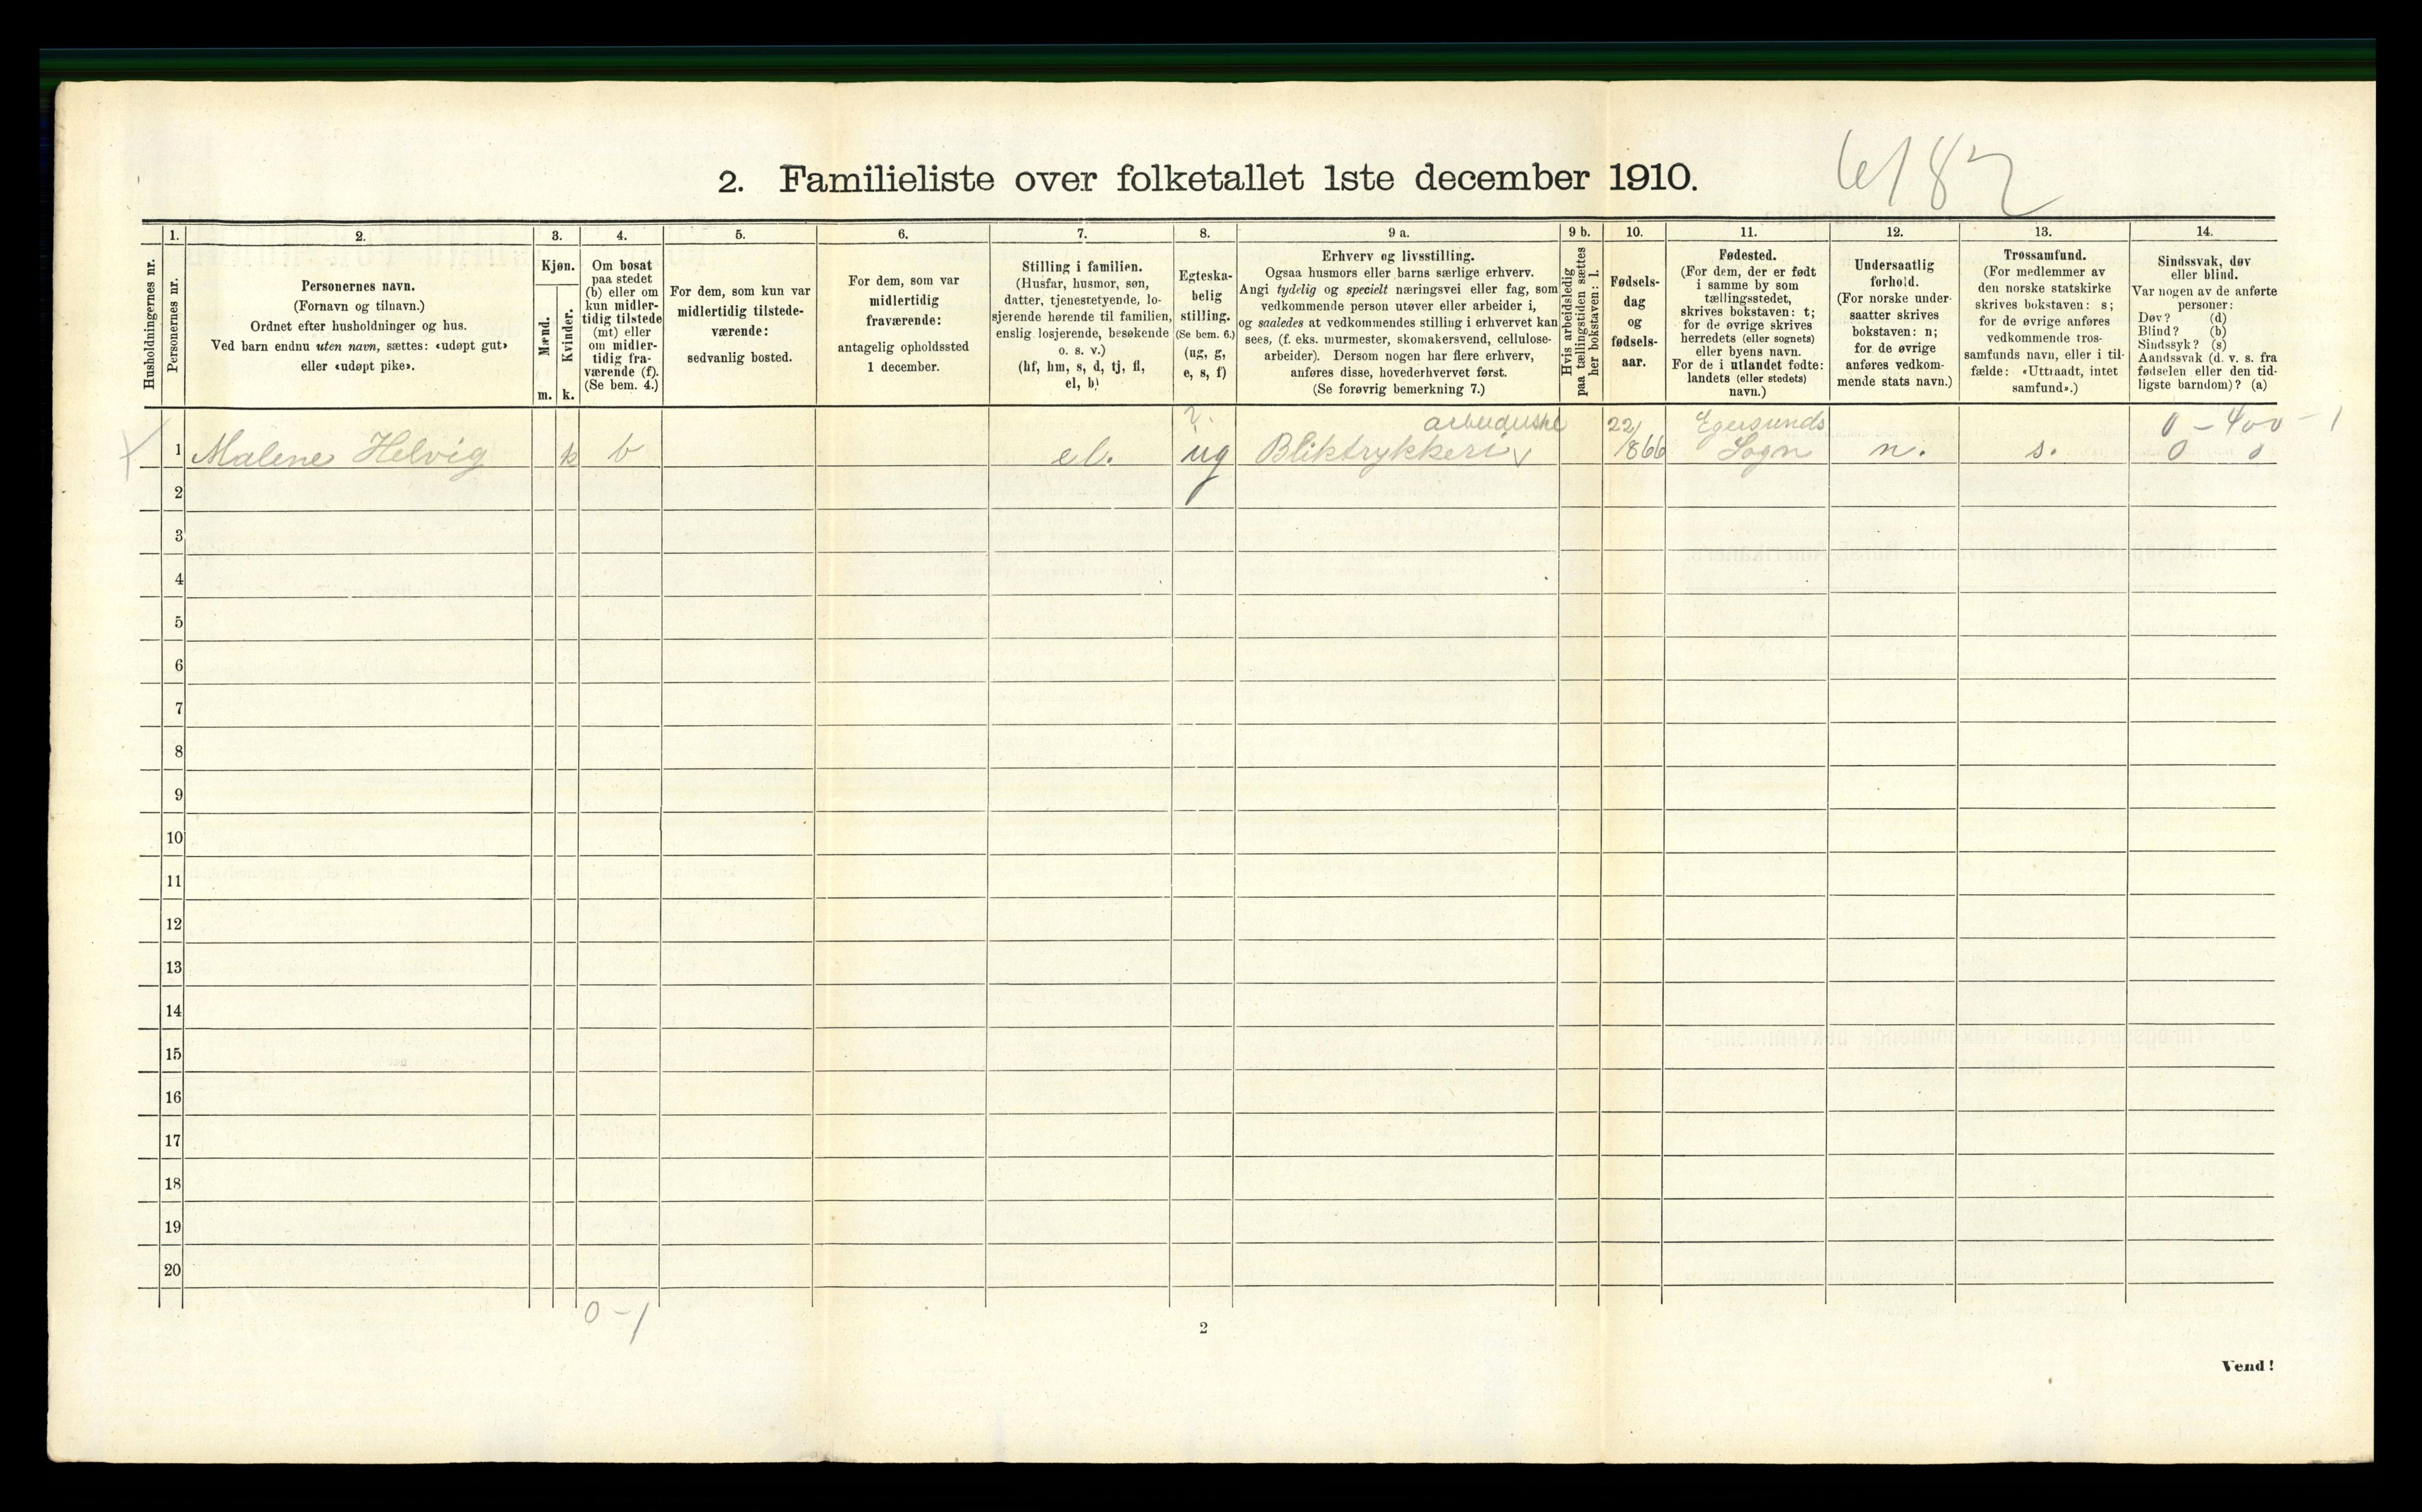 2. Familieliste over folketallet 1ste december 1910.
Husholdningernes nr.
1.
Personernes nr.
2.
Personernes navn.
(Fornavn og tilnavn.)
Ordnet efter husholdninger og hus.
Ved barn endnu uten navn, sættes: «udøpt gut»
eller «udøpt pike».
3.
Kjøn.
Mænd.
Kvinder.
m. k.
4.
Om bosat
paa stedet
(b) eller om
kun midler-
tidig tilstede
(mt) eller
om midler-
tidig fra-
værende (f).
(Se bem. 4.)
5.
For dem, som kun var
midlertidig tilstede-
værende:
sedvanlig bosted.
6.
For dem, som var
midlertidig
fraværende:
antagelig opholdssted
1 december.
7.
Stilling i familien.
(Husfar, husmor, søn,
datter, tjenestetyende, lo-
sjerende hørende til familien,
enslig losjerende, besøkende
o. s. v.)
(hf, hm, s, d, tj, fl,
el, b)
8.
Egteska-
belig
stilling.
(Se bem. 6.)
(ug, g,
e, s, f)
9 a.
Erhverv og livsstilling.
Ogsaa husmors eller barns særlige erhverv.
Angi tydelig og specielt næringsvei eller fag, som
vedkommende person utøver eller arbeider i,
og saaledes at vedkommendes stilling i erhvervet kan
sees, (f. eks. murmester, skomakersvend, cellulose-
arbeider). Dersom nogen har flere erhverv,
anføres disse, hovederhvervet først.
(Se forøvrig bemerkning 7.)
9 b.
Hvis arbeidsledig
paa tællingstiden sættes
her bokstaven: l.
10.
Fødsels-
dag
og
fødsels-
aar.
11.
Fødested.
(For dem, der er født
i samme by som
tællingsstedet,
skrives bokstaven: t;
for de øvrige skrives
herredets (eller sognets)
eller byens navn.
For de i utlandet fødte:
landets (eller stedets)
navn.)
12.
Undersaatlig
forhold.
(For norske under-
saatter skrives
bokstaven: n;
for de øvrige
anføres vedkom-
mende stats navn.)
13.
Trossamfund.
(For medlemmer av
den norske statskirke
skrives bokstaven: s;
for de øvrige anføres
vedkommende tros-
samfunds navn, eller i til-
fælde: «Uttraadt, intet
samfund».)
14.
Sindssvak, døv
eller blind.
Var nogen av de anførte
personer:
Døv? (d)
Blind? (b)
Sindssyk? (s)
Aandssvak (d. v. s. fra
fødselen eller den tid-
ligste barndom)? (a)
2. arbeiderske 22/ Egersunds 0 - 400 - 1
1 Malene Helvig k b el. ug Bliktrykkeri 1866 Sogn n. s. 0 0
2
3
4
5
6
7
8
9
10
11
12
13
14
15
16
17
18
19
20
0 - 1
2
Vend!